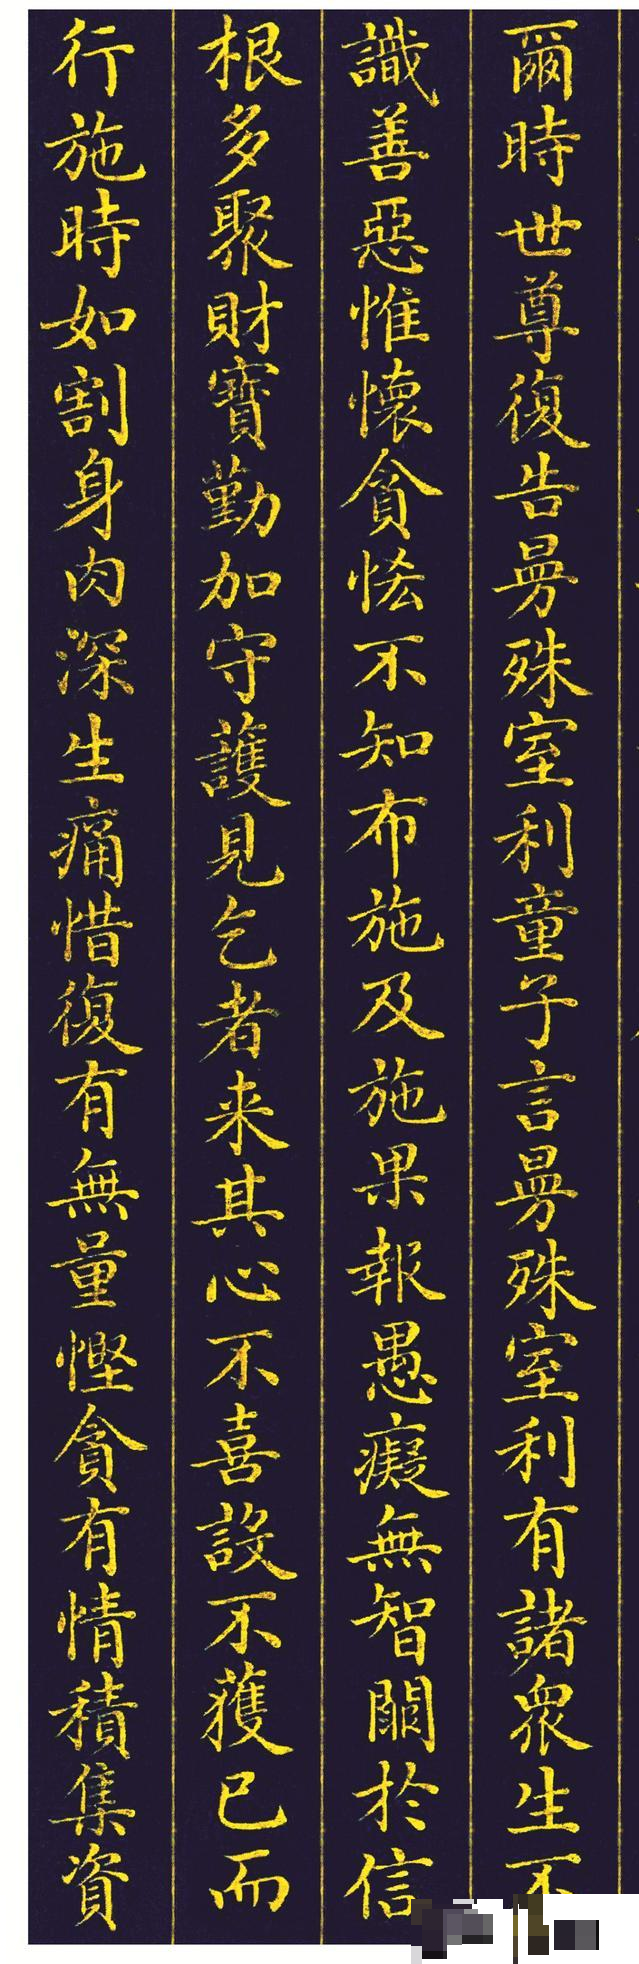 爾時世尊復告曼殊室利童子言曼殊室利有諸衆生不
識善惡惟懷貪恡不知布施及施果報愚癡無智闕於信
根多聚財寶勤加守護見乞者来其心不喜設不獲已而
行施時如割身肉深生痛惜復有無量慳貪有情積集資